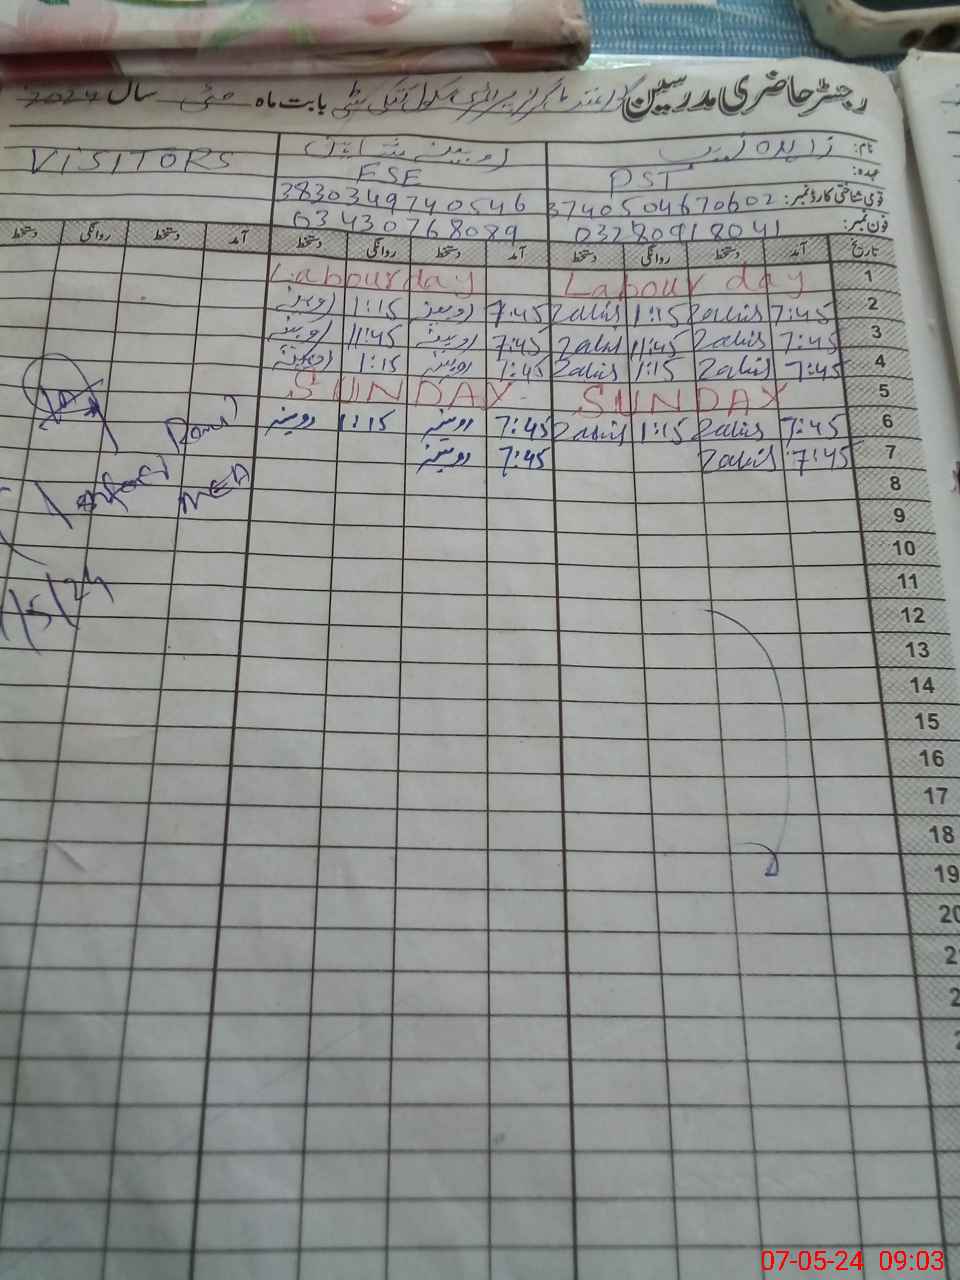 رجسٹر حاضری مدرسین گورنمنٹ گرلز پرائمری سکول بابت ماہ مئی سال 2024
نام: زاہدہ زینب روبینہ شاہین VISITORS
عہدہ: PST ESE
قومی شناختی کارڈ نمبر: 3740504670602 3830349740546
فون نمبر: 03280918041 03430768089
تاریخ آمد دستخط روانگی دستخط آمد دستخط روانگی دستخط آمد دستخط روانگی دستخط
1 Labour day Labour day
2 7:45 Zahid 1:15 Zahid 7:45 روبینہ 1:15 روبینہ
3 7:45 Zahid 11:45 Zahid 7:45 روبینہ 11:45 روبینہ
4 7:45 Zahid 1:15 Zahid 7:45 روبینہ 1:15 روبینہ
5 SUNDAY SUNDAY
6 7:45 Zahid 1:15 Zahid 7:45 روبینہ 1:15 روبینہ
7 7:45 Zahid 7:45 روبینہ
8
9
10
11
12
13
14
15
16
17
18
19
20
MEA
/5/24
07-05-24 09:03